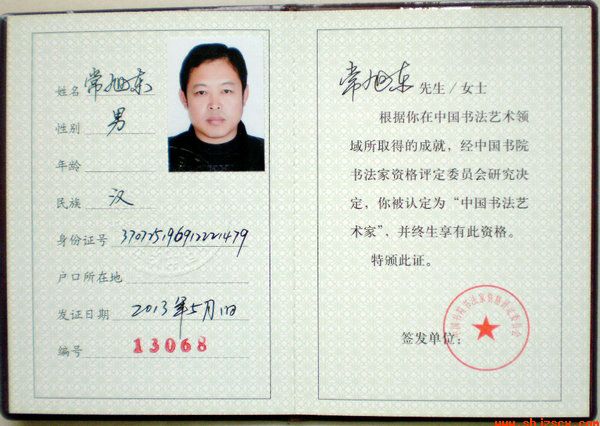 姓名 常旭东
性别 男
年龄
民族 汉
身份证号 370725196912221479
户口所在地
发证日期 2013年5月1日
编号 13068
常旭东 先生/女士
根据你在中国书法艺术领
域所取得的成就，经中国书院
书法家资格评定委员会研究决
定，你被认定为“中国书法艺
术家”，并终生享有此资格。
特颁此证。
签发单位：
中国书院书法家资格评定委员会